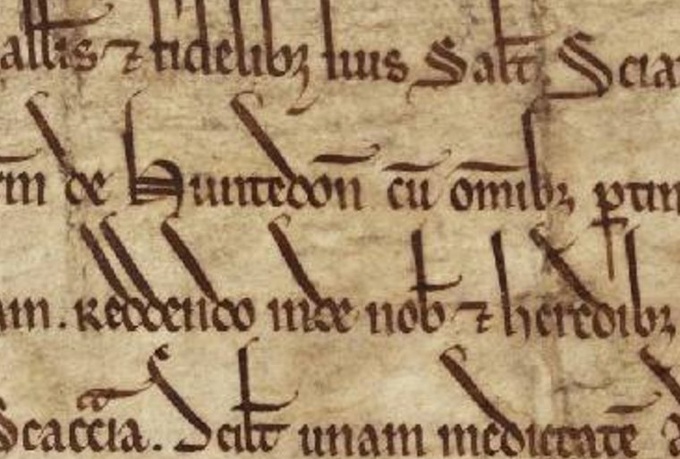 allis ⁊ fidelibꝫ suis Salt̃. Scia
m̃ de Huntedon̄ cū om̄ibꝫ ꝑtin
am. Reddendo inde nob̃ ⁊ heredibꝫ
Scaccia. Scilt̃ unam medietatē